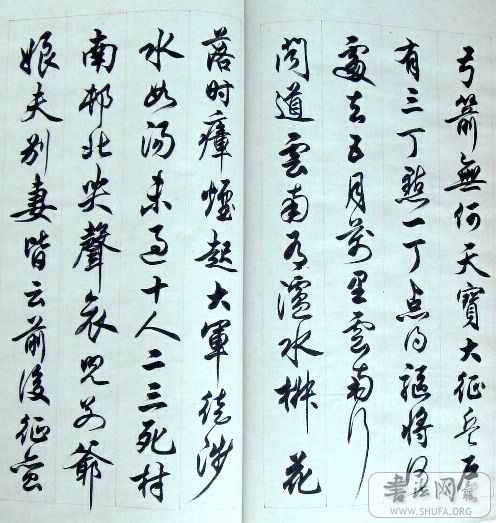 弓箭無何天寶大徵兵戶
有三丁點一丁点得驅將何
處去五月萬里雲南行
聞道雲南有瀘水椒花
落时瘴煙起大軍徒涉
水如湯未過十人二三死村
南邨北哭聲哀兒别爺
娘夫别妻皆云前後征蠻
書法网
WWW.SHUFA.ORG